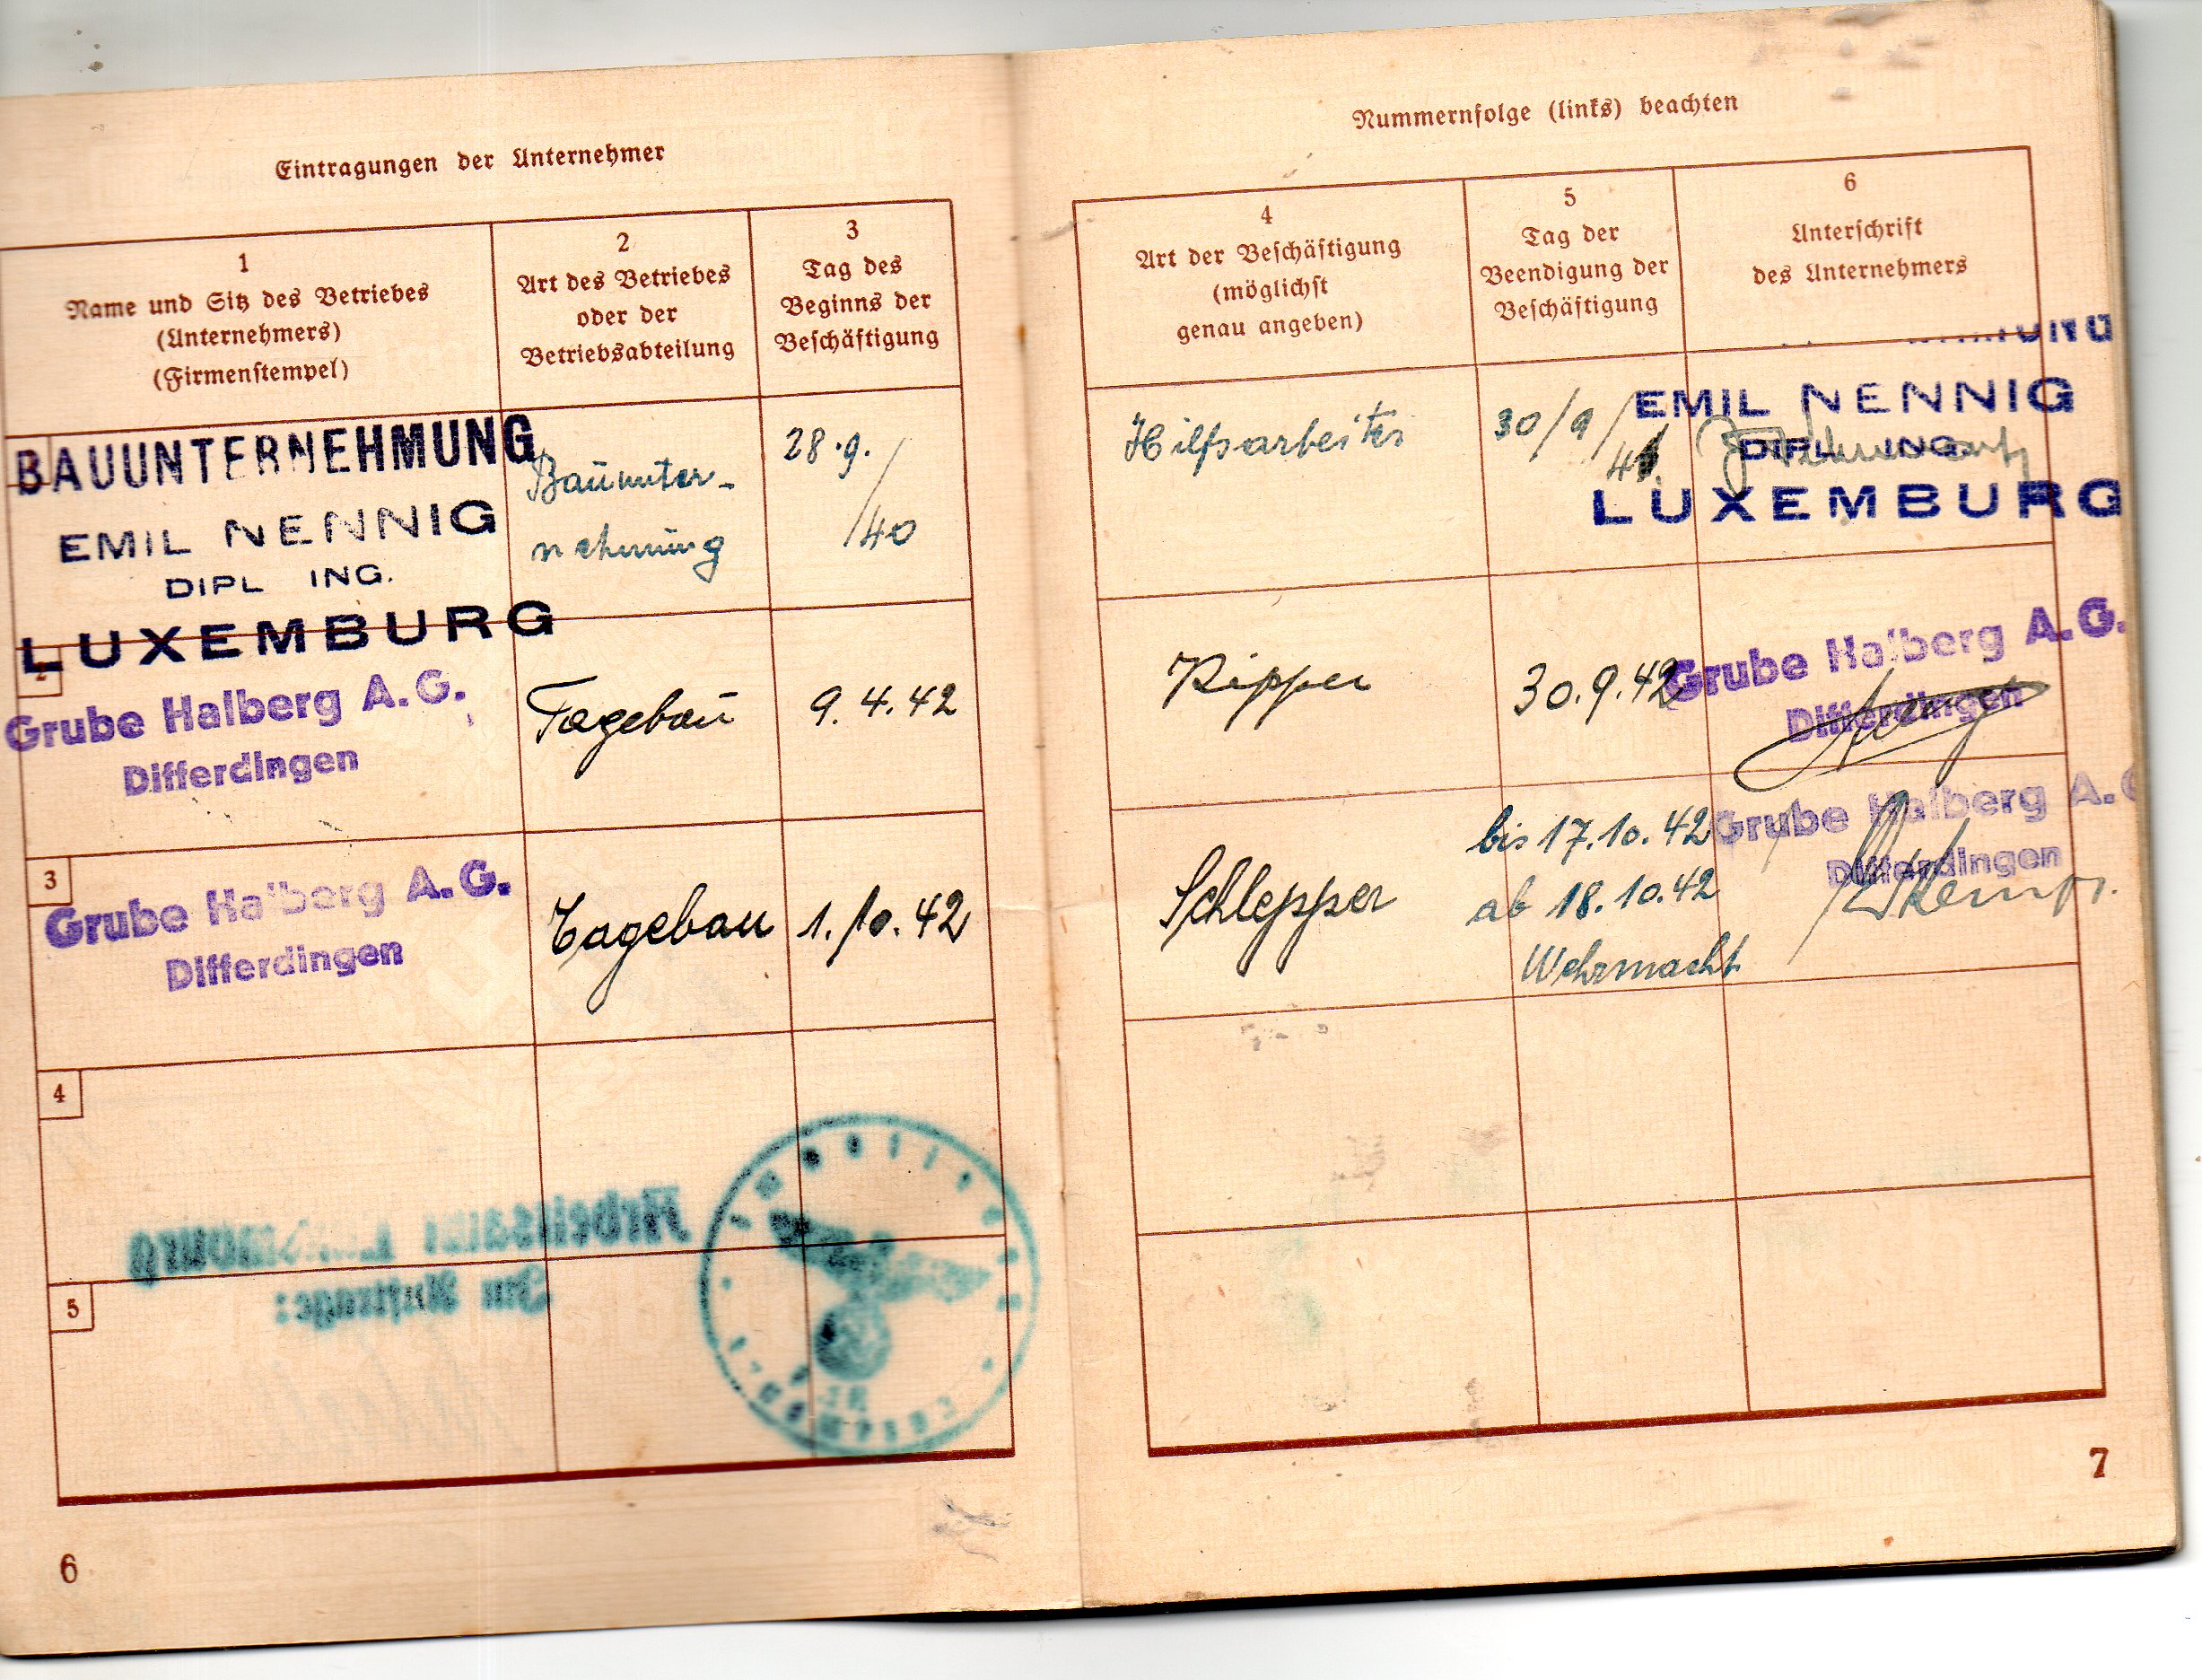 Eintragungen der Unternehmer
1
Name und Sitz des Betriebes
(Unternehmers)
(Firmenstempel)
2
Art des Betriebes
oder der
Betriebsabteilung
3
Tag des
Beginns der
Beschäftigung
BAUUNTERNEHMUNG
EMIL NENNIG
DIPL ING.
LUXEMBURG
Bauunter-
nehmung
28.9.
/40
2
Grube Halberg A.G.
Differdingen
Tagebau
9.4.42
3
Grube Halberg A.G.
Differdingen
Tagebau
1.10.42
4
Arbeitsamt Luxemburg
Im Auftrage:
5
6
Nummernfolge (links) beachten
4
Art der Beschäftigung
(möglichst
genau angeben)
5
Tag der
Beendigung der
Beschäftigung
6
Unterschrift
des Unternehmers
Hilfsarbeiter
30/9/
41.
EMIL NENNIG
DIPL ING.
LUXEMBURG
Kipper
30.9.42
Grube Halberg A.G.
Differdingen
Schlepper
bis 17.10.42
ab 18.10.42
Wehrmacht
Grube Halberg A.G
Differdingen
7